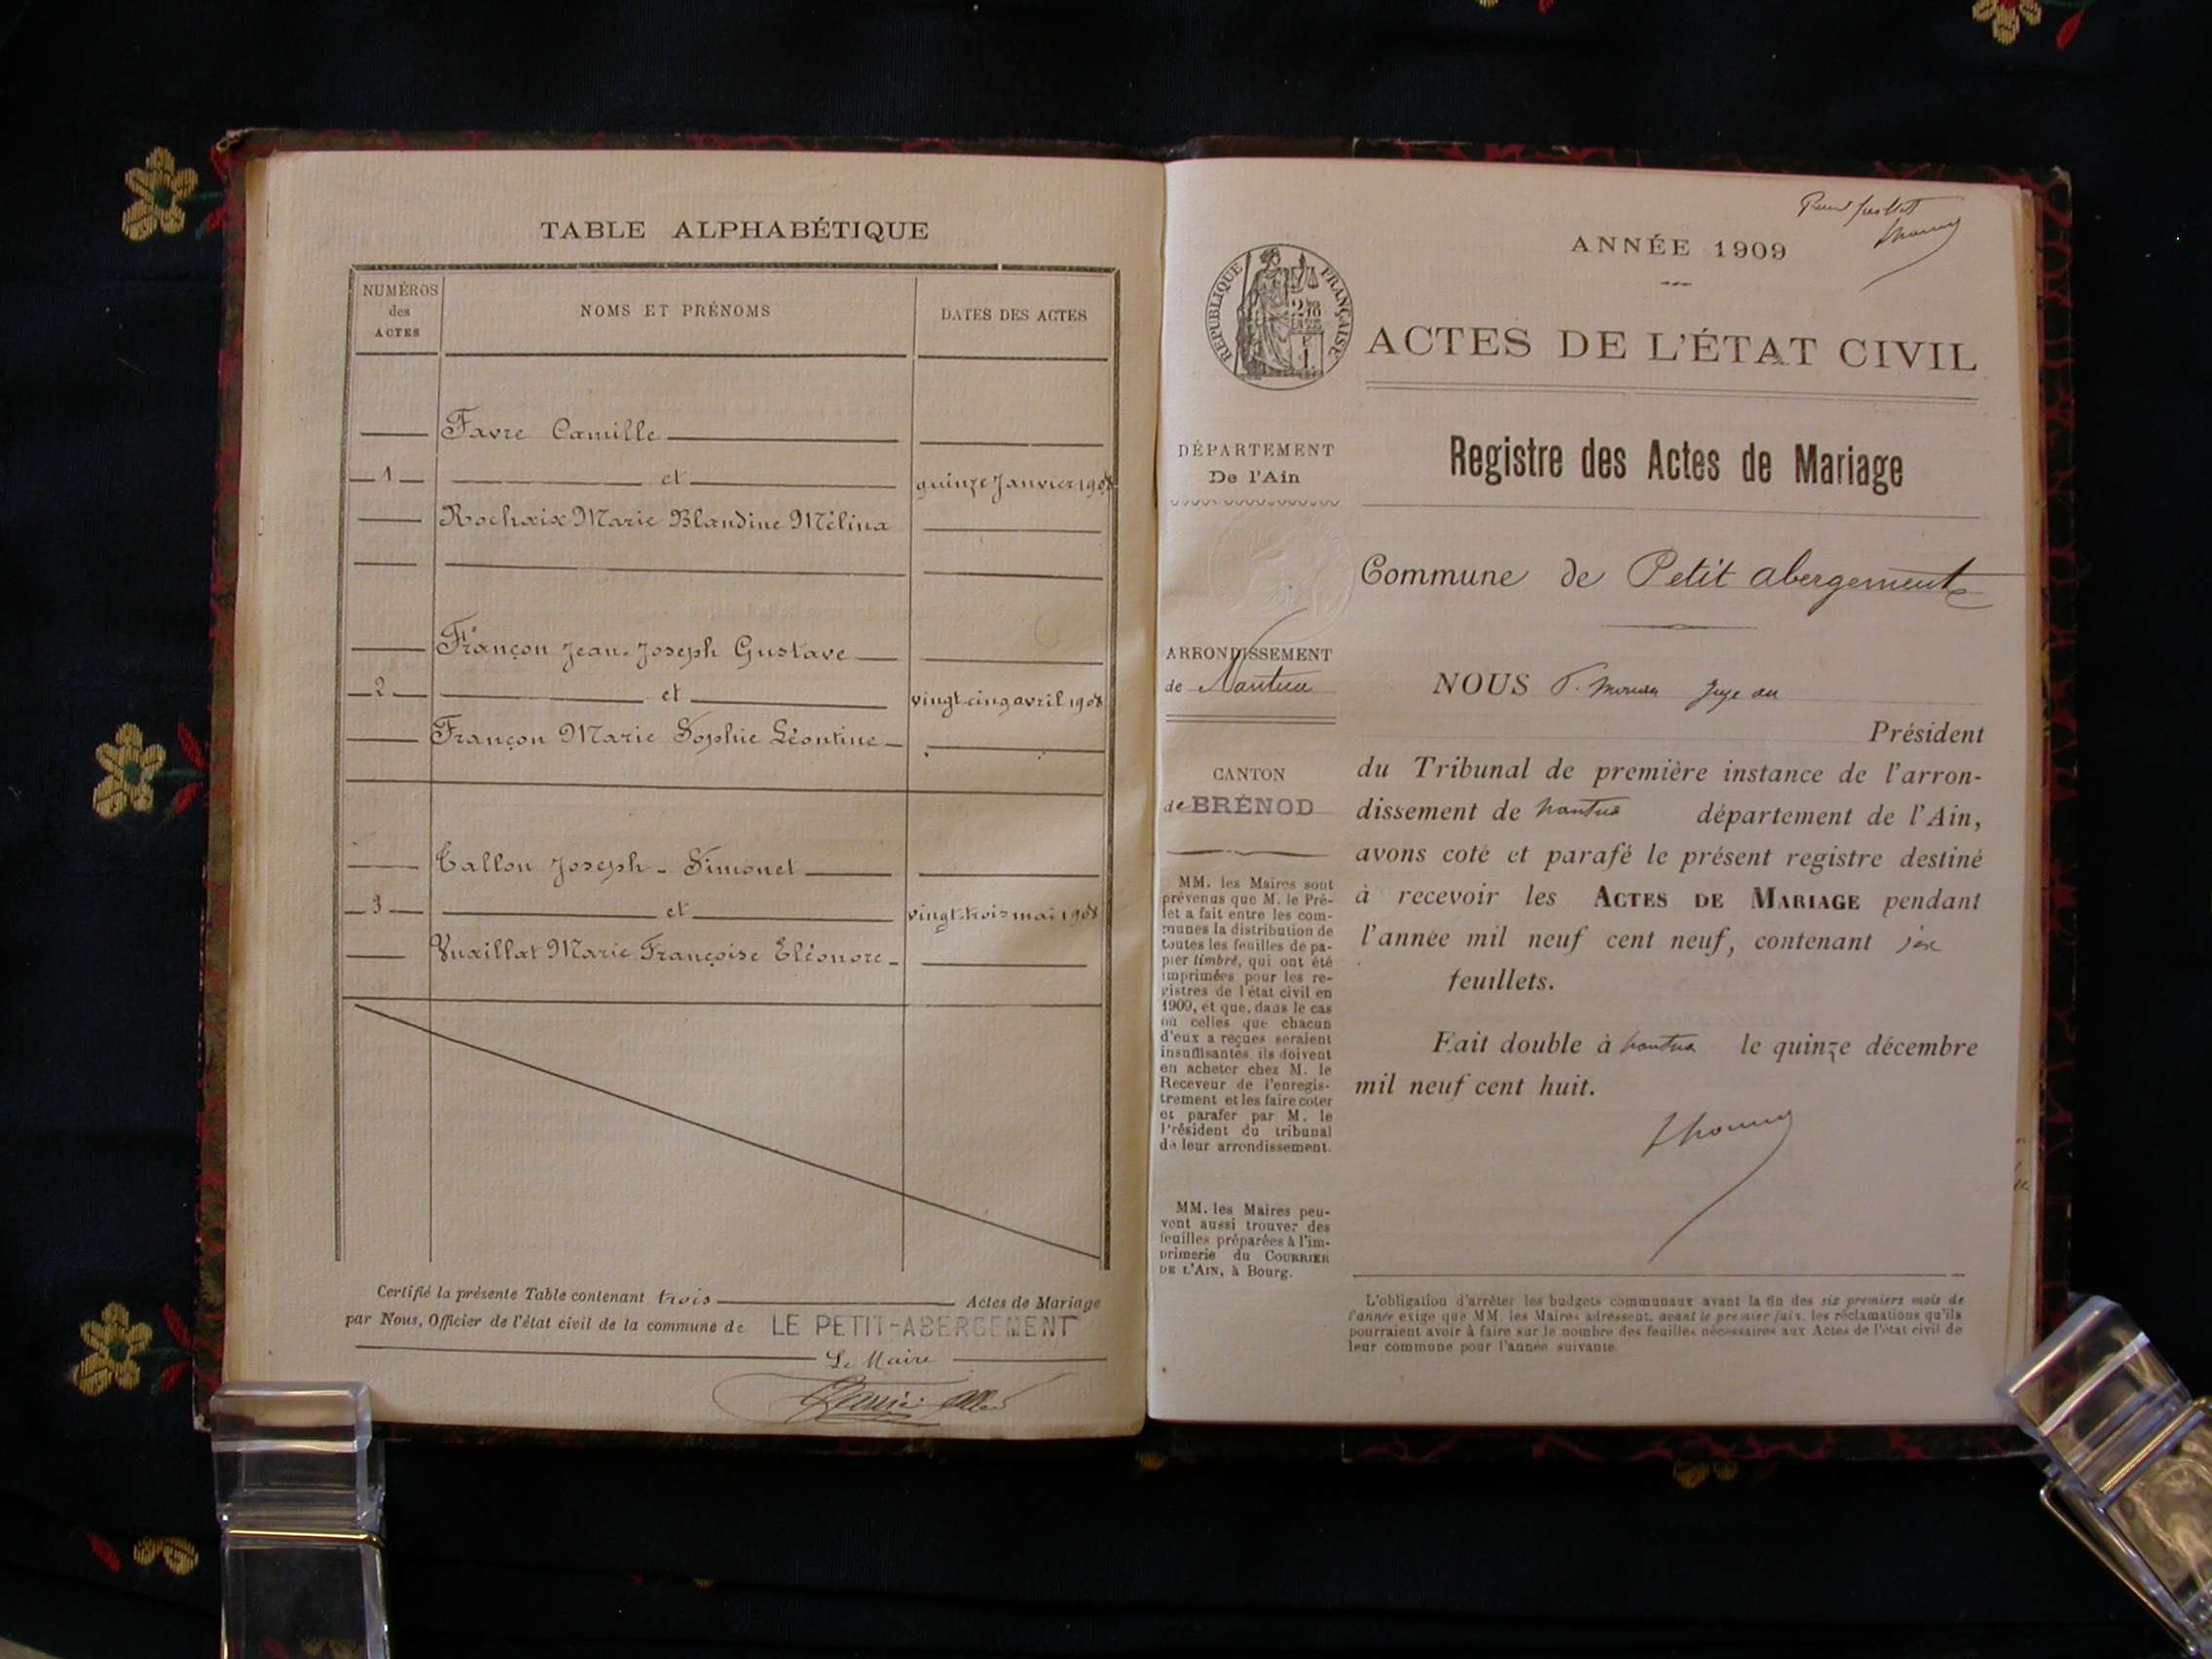 TABLE ALPHABÉTIQUE
NUMÉROS
des
ACTES
NOMS ET PRÉNOMS
DATES DES ACTES
Favre Camille
1 et quinze Janvier 1908
Rochaix Marie Blandine Mélina
Françon Jean-Joseph Gustave
2 et vingt-cinq avril 1908
Françon Marie Sophie Léontine
Callon Joseph-Simonet
3 et vingt-trois mai 1908
Vuaillat Marie Françoise Eléonore
Certifié la présente Table contenant trois Actes de Mariage
par Nous, Officier de l'état civil de la commune de LE PETIT-ABERGEMENT
Le Maire
ANNÉE 1909
RÉPUBLIQUE FRANÇAISE
ACTES DE L'ÉTAT CIVIL
DÉPARTEMENT
De l'Ain
Registre des Actes de Mariage
Commune de Petit abergement
ARRONDISSEMENT
de Nantua
CANTON
de BRÉNOD
MM. les Maires sont
prévenus que M. le Pré-
fet a fait entre les com-
munes la distribution de
toutes les feuilles de pa-
pier timbré, qui ont été
imprimées pour les re-
gistres de l'état civil en
1909, et que, dans le cas
où celles que chacun
d'eux a reçues seraient
insuffisantes ils doivent
en acheter chez M. le
Receveur de l'enregis-
trement et les faire coter
et parafer par M. le
Président du tribunal
de leur arrondissement.
MM. les Maires peu-
vent aussi trouver des
feuilles préparées à l'im-
primerie du COURRIER
DE L'AIN, à Bourg.
NOUS Juge au
Président
du Tribunal de première instance de l'arron-
dissement de nantua département de l'Ain,
avons coté et parafé le présent registre destiné
à recevoir les ACTES DE MARIAGE pendant
l'année mil neuf cent neuf, contenant
feuillets.
Fait double à nantua le quinze décembre
mil neuf cent huit.
L'obligation d'arrêter les budgets communaux avant la fin des six premiers mois de
l'année exige que MM. les Maires adressent, avant le premier juin, les réclamations qu'ils
pourraient avoir à faire sur le nombre des feuilles nécessaires aux Actes de l'état civil de
leur commune pour l'année suivante.